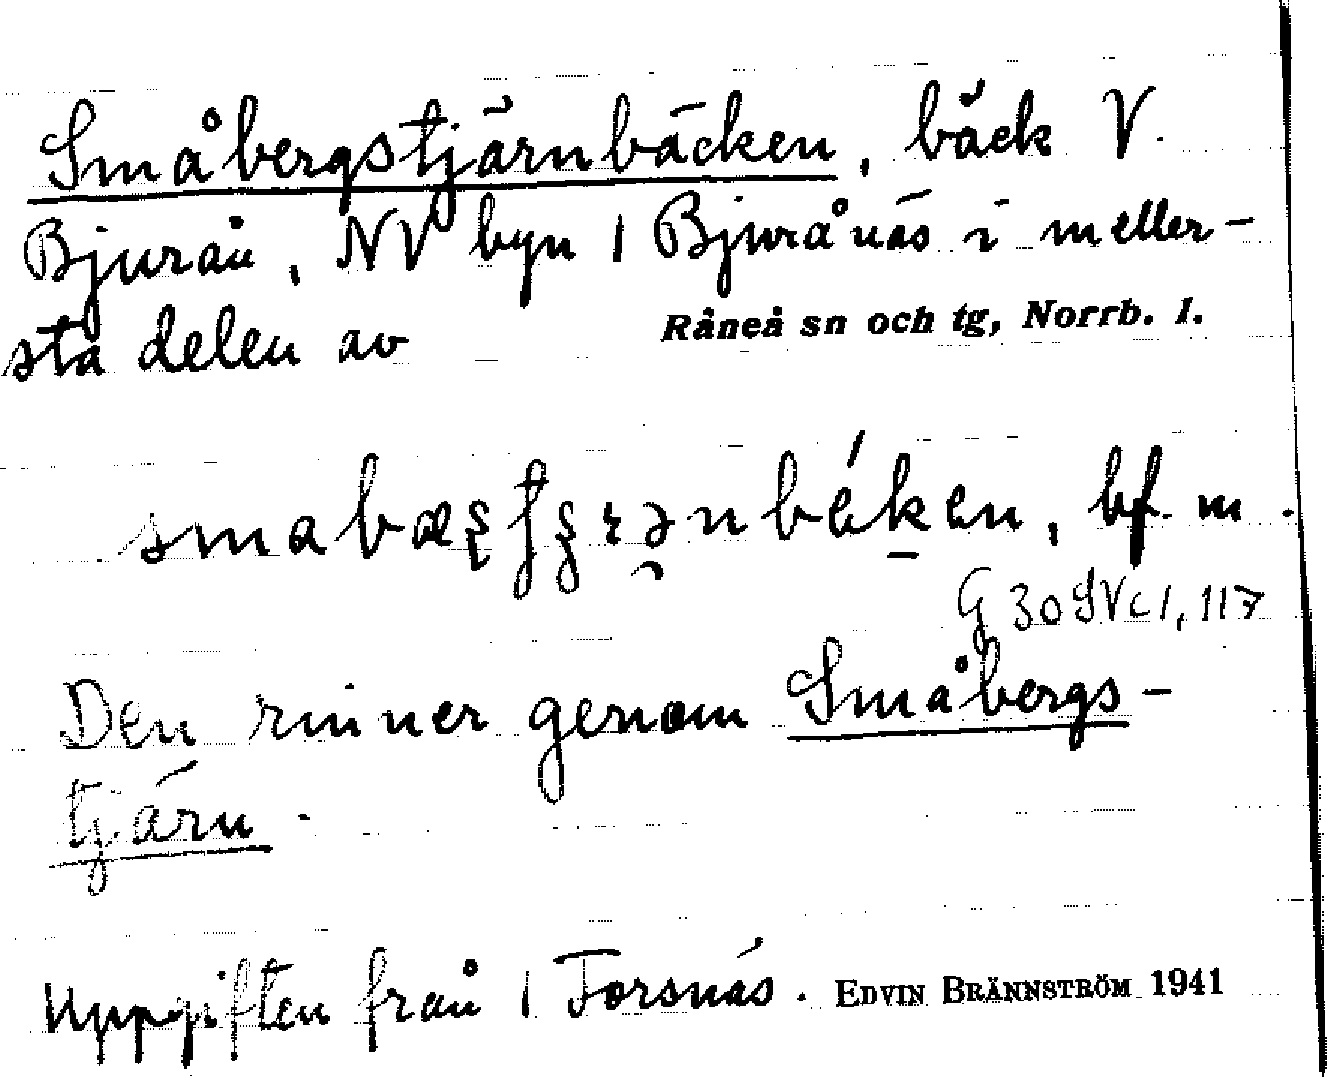 Småbergstjärnbäcken, bäck V.
Bjurån, NV byn 1 Bjurånäs i meller-
sta delen av Råneå sn och tg, Norrb. l.
bf. m.
G 30 SV c 1, 117
Den rinner genom Småbergs-
tjärn.
Uppgiften från 1 Forsnäs. EDVIN BRÄNNSTRÖM 1941